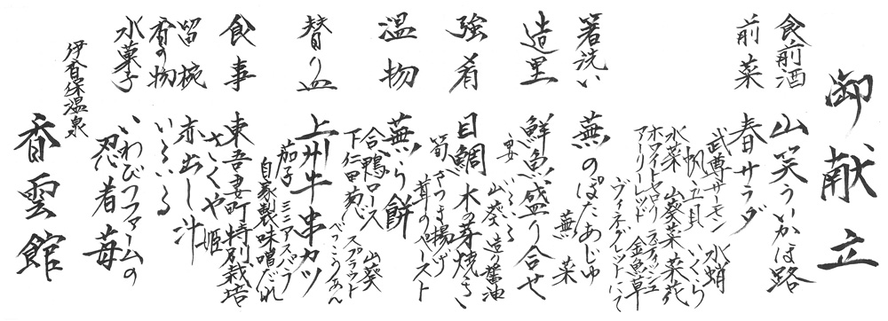 御献立
食前酒 山笑ういかほ路
前菜 春サラダ
武尊サーモン 水蛸
帆立貝 いくら
水菜 山葵菜 菜花
ホワイトセロリ ラディッシュ
アーリーレッド 金魚草
ヴィネグレットにて
箸洗い 蕪のぽたあじゅ
蕪 菜
造里 鮮魚盛り合せ
妻 いろいろ
山葵 造り醤油
強肴 目鯛木の芽焼き
筍さつま揚げ
茸のペースト
温物 蕪いり餅
合鴨ロース 山葵
下仁田葱 スプラウト
べっこうあん
替り皿 上州牛串カツ
茄子 ミニアスパラ
自家製味噌だれ
食事 東吾妻町特別栽培
さいくや姫
留椀 赤出し汁
香の物 いろいろ
水菓子 いわびつファームの
忍者苺
伊香保温泉
香雲館